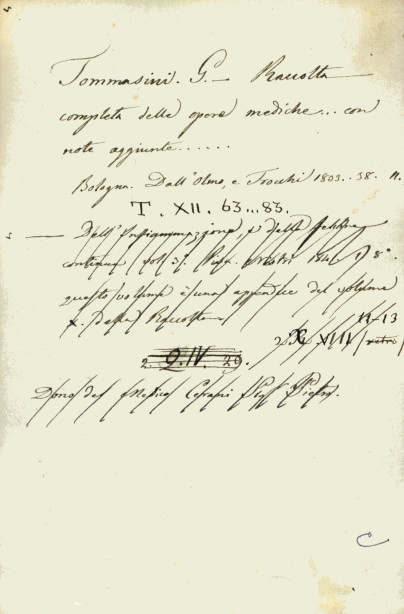 Tommasini. G. — Raccolta
completa delle opere mediche... con
note aggiunte......
Bologna. Dall'Olmo, e Tiocchi 1833..38. 11.
T. XII. 63...83.
— Dell'Infiammazione, e della febbre
continua vol. 8°.
questo volume è una appendice del volume
X. della Raccolta
11-13
XVIII
2. Q.IV. 29.
Dono del Medico Pietro.
C